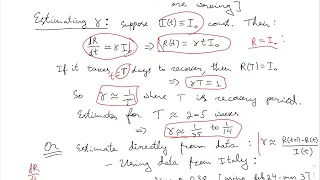 are working]
Estimating γ: Suppose I(t) = I₀ const. Then:
dR/dt = γ I₀ ⟹ R(t) = γ t I₀ R = I₀
If it takes t=T days to recover, then R(T) = I₀
⟹ γT = 1
So γ ≈ 1/T where T is recovery period.
Estimates for T ≈ 2-5 weeks
⟹ γ ≈ 1/35 to 1/14
Or Estimate directly from data: γ ≈ R(t+1)-R(t) / I(t)
- Using data from Italy:
dR